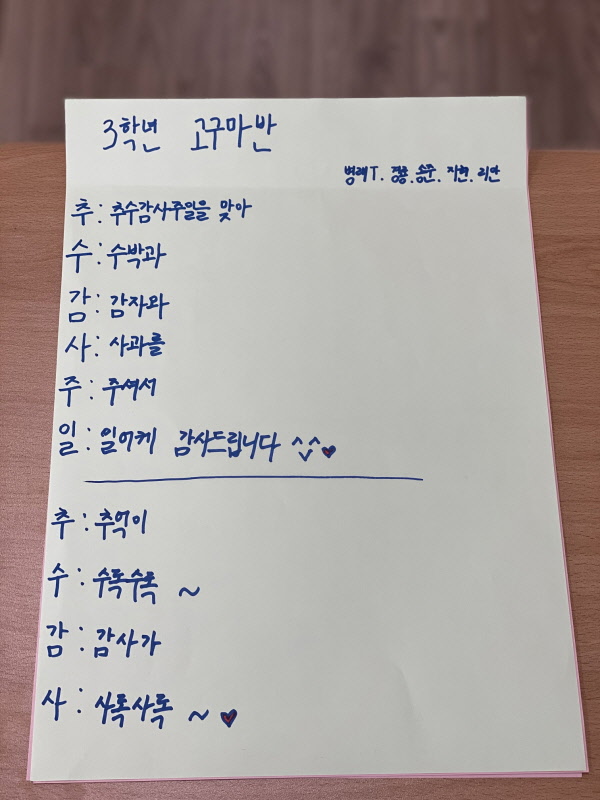 3학년 고구마반
병래T. 정훈. 승준. 지현. 리안
추 : 추수감사주일을 맞아
수 : 수박과
감 : 감자와
사 : 사과를
주 : 주셔서
일 : 일어케 감사드립니다 ^v^♥
추 : 추억이
수 : 수록수록 ~
감 : 감사가
사 : 사록사록 ~ ♥